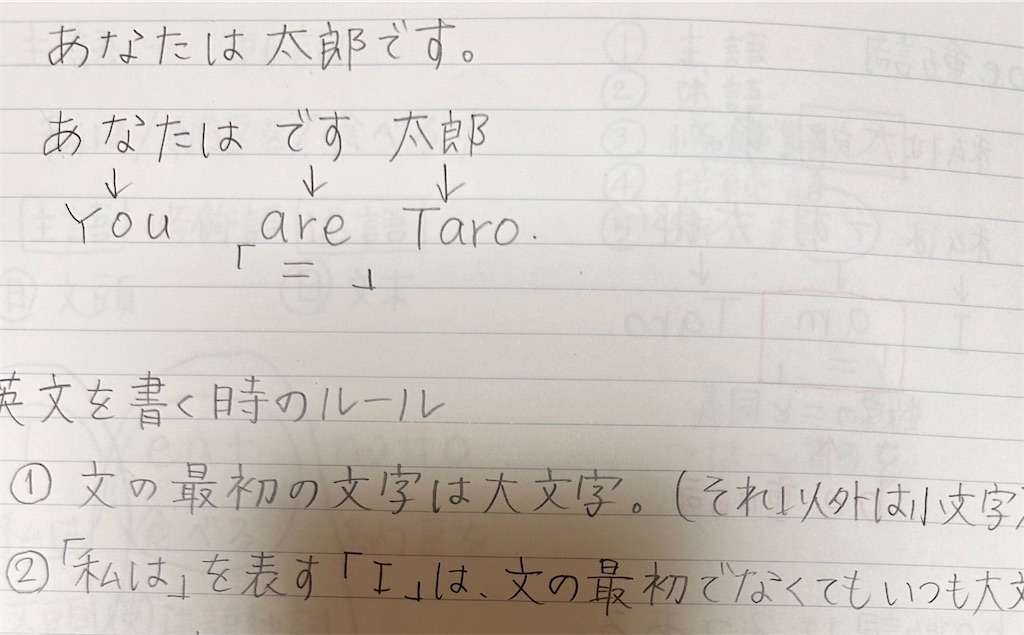 あなたは太郎です。
あなたは です 太郎
↓ ↓ ↓
You are Taro.
「 = 」
英文を書く時のルール
① 文の最初の文字は大文字。(それ以外は小文字)
② 「私は」を表す「I」は、文の最初でなくてもいつも大文